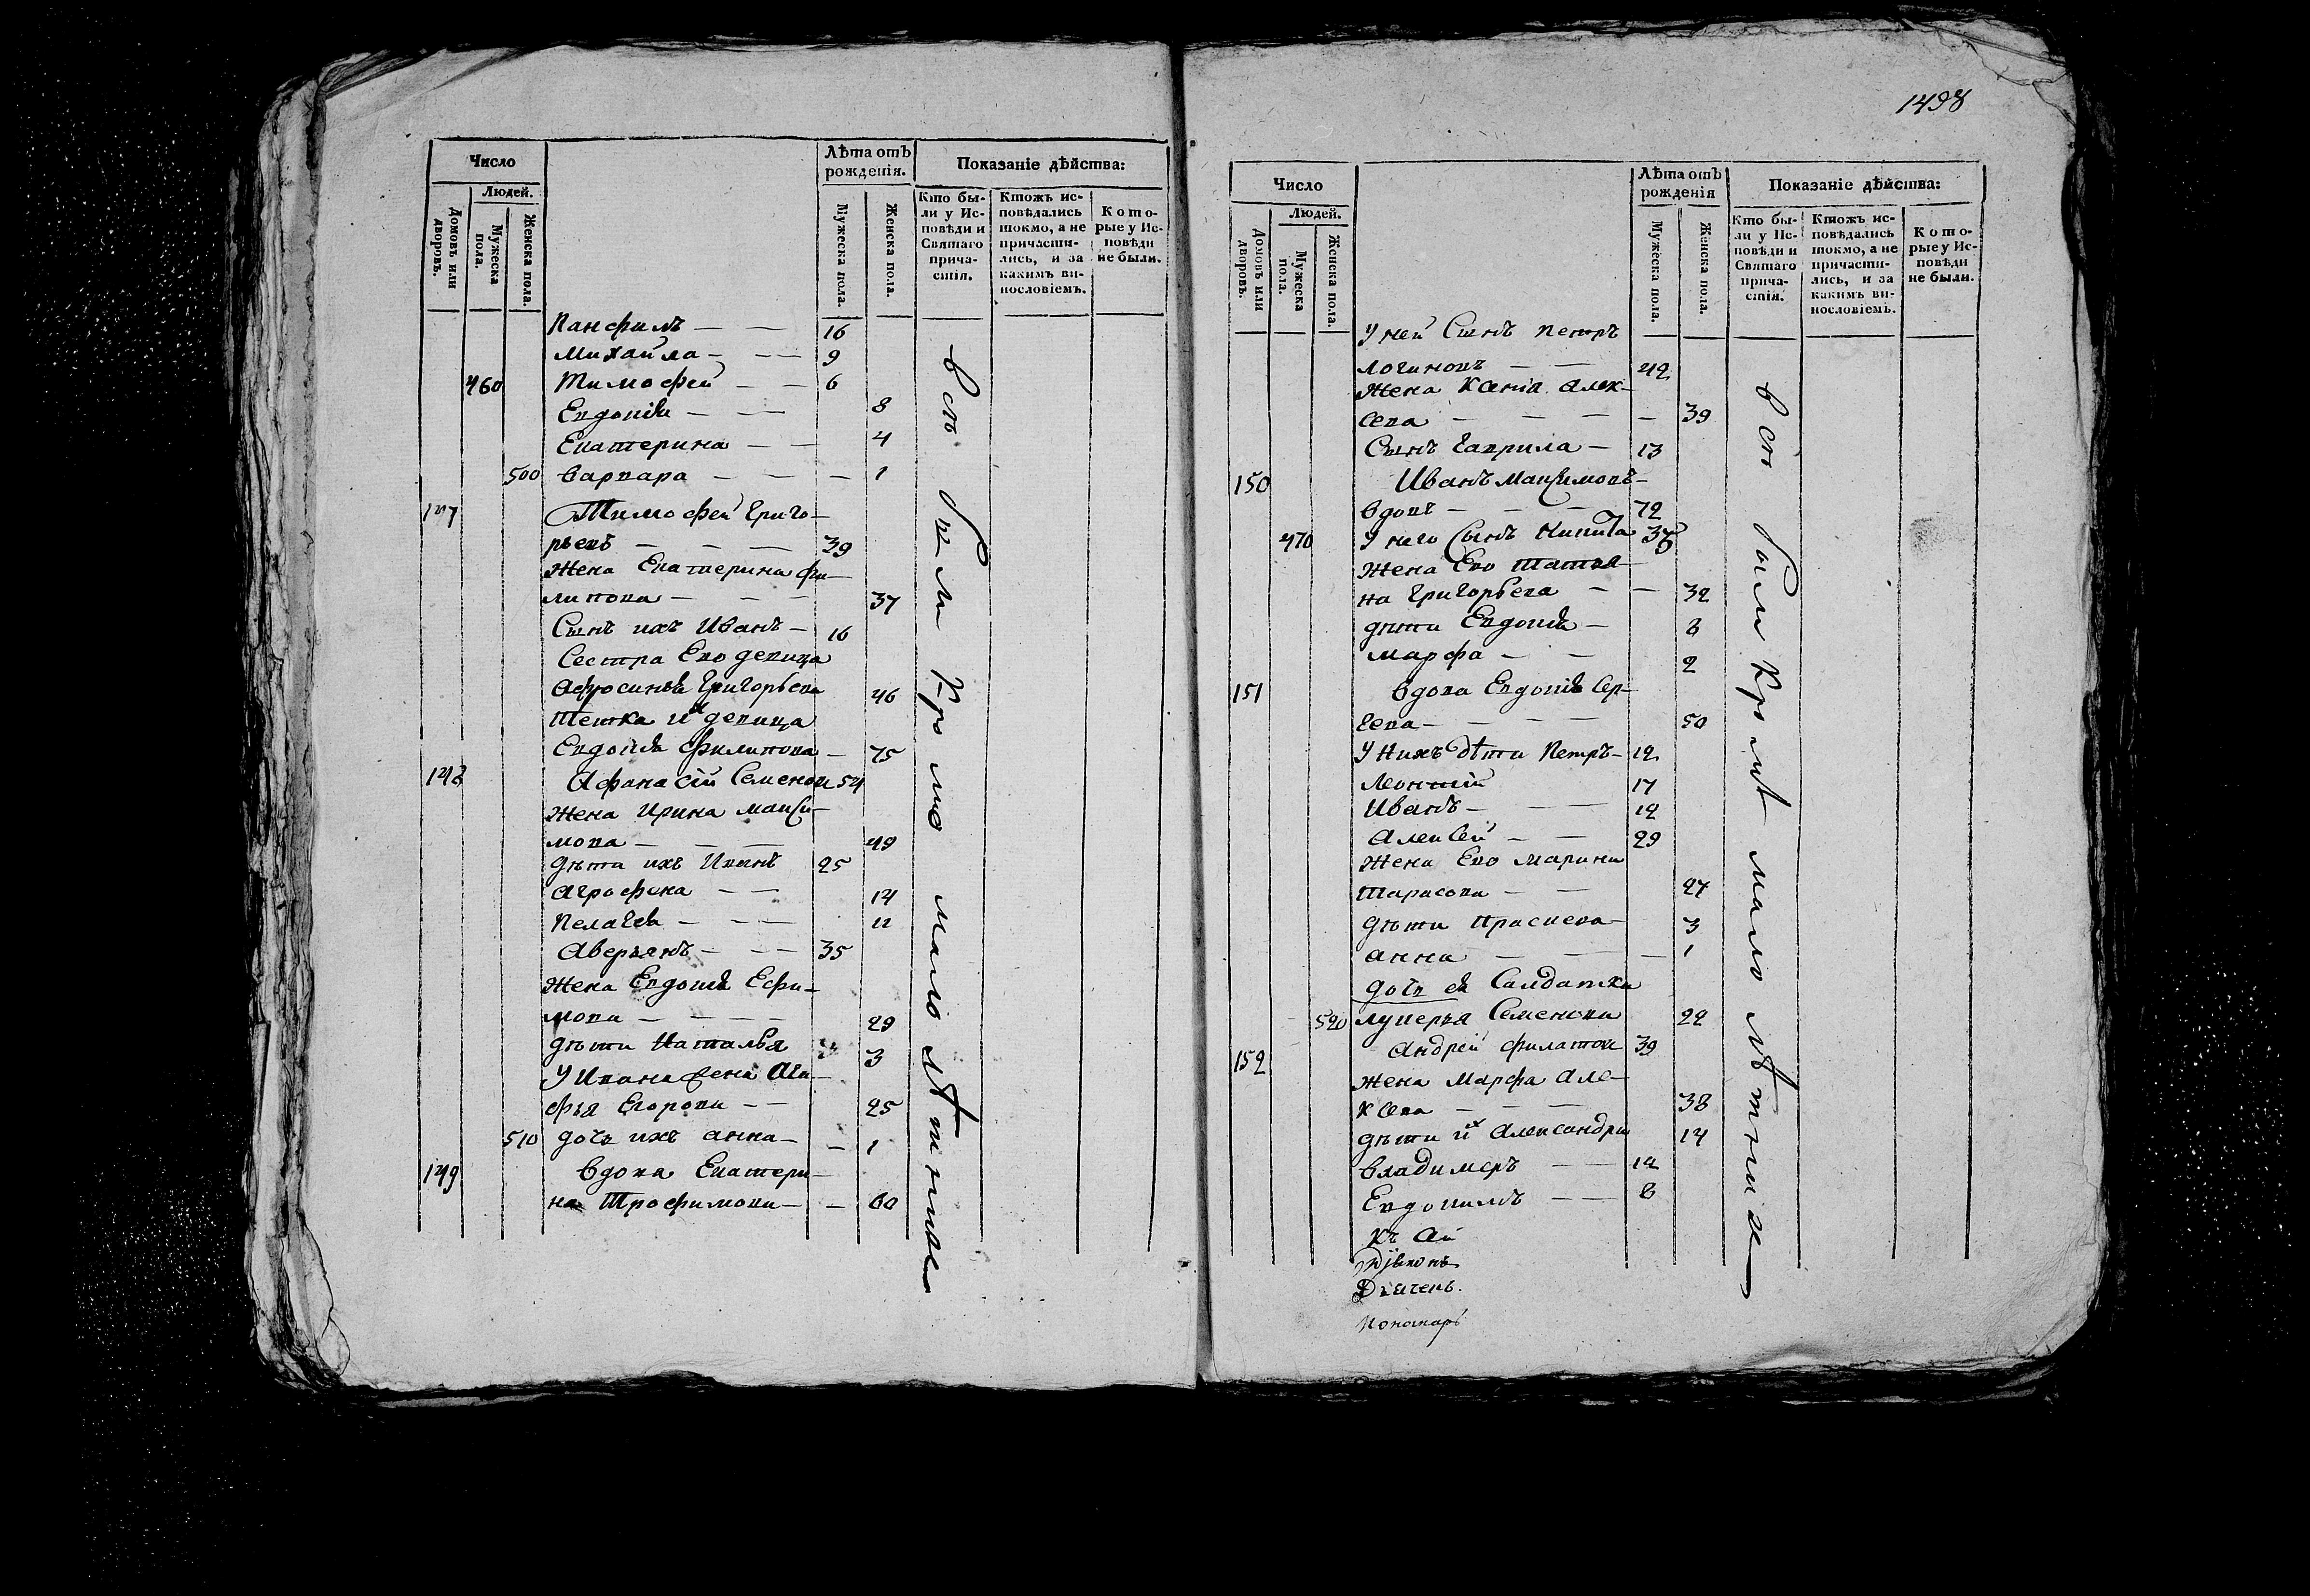 Число
Людей.
Домовъ или дворовъ.
Мужеска пола.
Женска пола.
Лѣта отъ рожденія.
Мужеска пола.
Женска пола.
Показаніе дѣйства:
Кто бы-
ли у Ис-
повѣди и
Святаго
прича-
стія.
Ктожъ ис-
повѣдались
токмо, а не
причасти-
лись, и за
какимъ ви-
нословіемъ.
Кото-
рые у Ис-
повѣди
не были.
Панфилъ — — 16
Михайла — — — 9
460 Тимофей — — 6
Евдокія — — 8
Екатерина — — 4
500 Варвара — — — 1
147 Тимофей Григо-
рьевъ — — — 39
Жена Екатерина Фи-
липова — — — 37
Сынъ ихъ Иванъ — 16
Сестра Ево девица
Афросинья Григорьева 46
Тетка их девица
Евдокія Филипова — 75
148 Афанасій Семенов 54
Жена Ирина Макси-
мова — — — 49
Дѣти ихъ Иванъ 25
Агрофена — — 14
Пелагея — — — 11
Аверьянъ — — — 35
Жена Евдокія Ефи-
мова — — — — 29
Дѣти Наталья 3
У Ивана жена Ага-
фья Егорова — — 25
510 дочь ихъ Анна — — 1
149 Вдова Екатери-
на Трофимова — — 60
всѣ были кромѣ малолѣтнихъ
1498
Число
Людей.
Домовъ или дворовъ.
Мужеска пола.
Женска пола.
Лѣта отъ рожденія
Мужеска пола.
Женска пола.
Показаніе дѣйства:
Кто бы-
ли у Ис-
повѣди и
Святаго
прича-
стія.
Ктожъ ис-
повѣдались
токмо, а не
причасти-
лись, и за
какимъ ви-
нословіемъ.
Кото-
рые у Ис-
повѣди
не были.
У ней Сынъ Петръ
Логиновъ — — 42
Жена Ксенія Алек-
сева — — — — 39
Сынъ Гаврила — 13
150 Иванъ Максимовъ —
вдовъ — — — 72
470 У него Сынъ Никита
Жена Ево Татья-
на Григорьева — — 32
дѣти Евдокія — 8
Марфа — — 2
151 Вдова Евдокія Сер-
геева — — — — 50
У Нихъ дѣти Петръ —
Леонтій 17
Иванъ — — 12
Алексей — — 29
Жена Ево Марина
Тарасова — — 27
Дѣти Прасковa — 3
Анна — — — 1
дочь ея Салдатка
520 Лукерья Семенова 22
152 Андрей Филатов 39
Жена Марфа Але-
ксева — — — 38
дѣти их Александра 14
Владимеръ — — 12
Евдокимъ — — 8
Діяконъ
Дьячекъ.
Пономарь
всѣ были кромѣ малолѣтнихъ